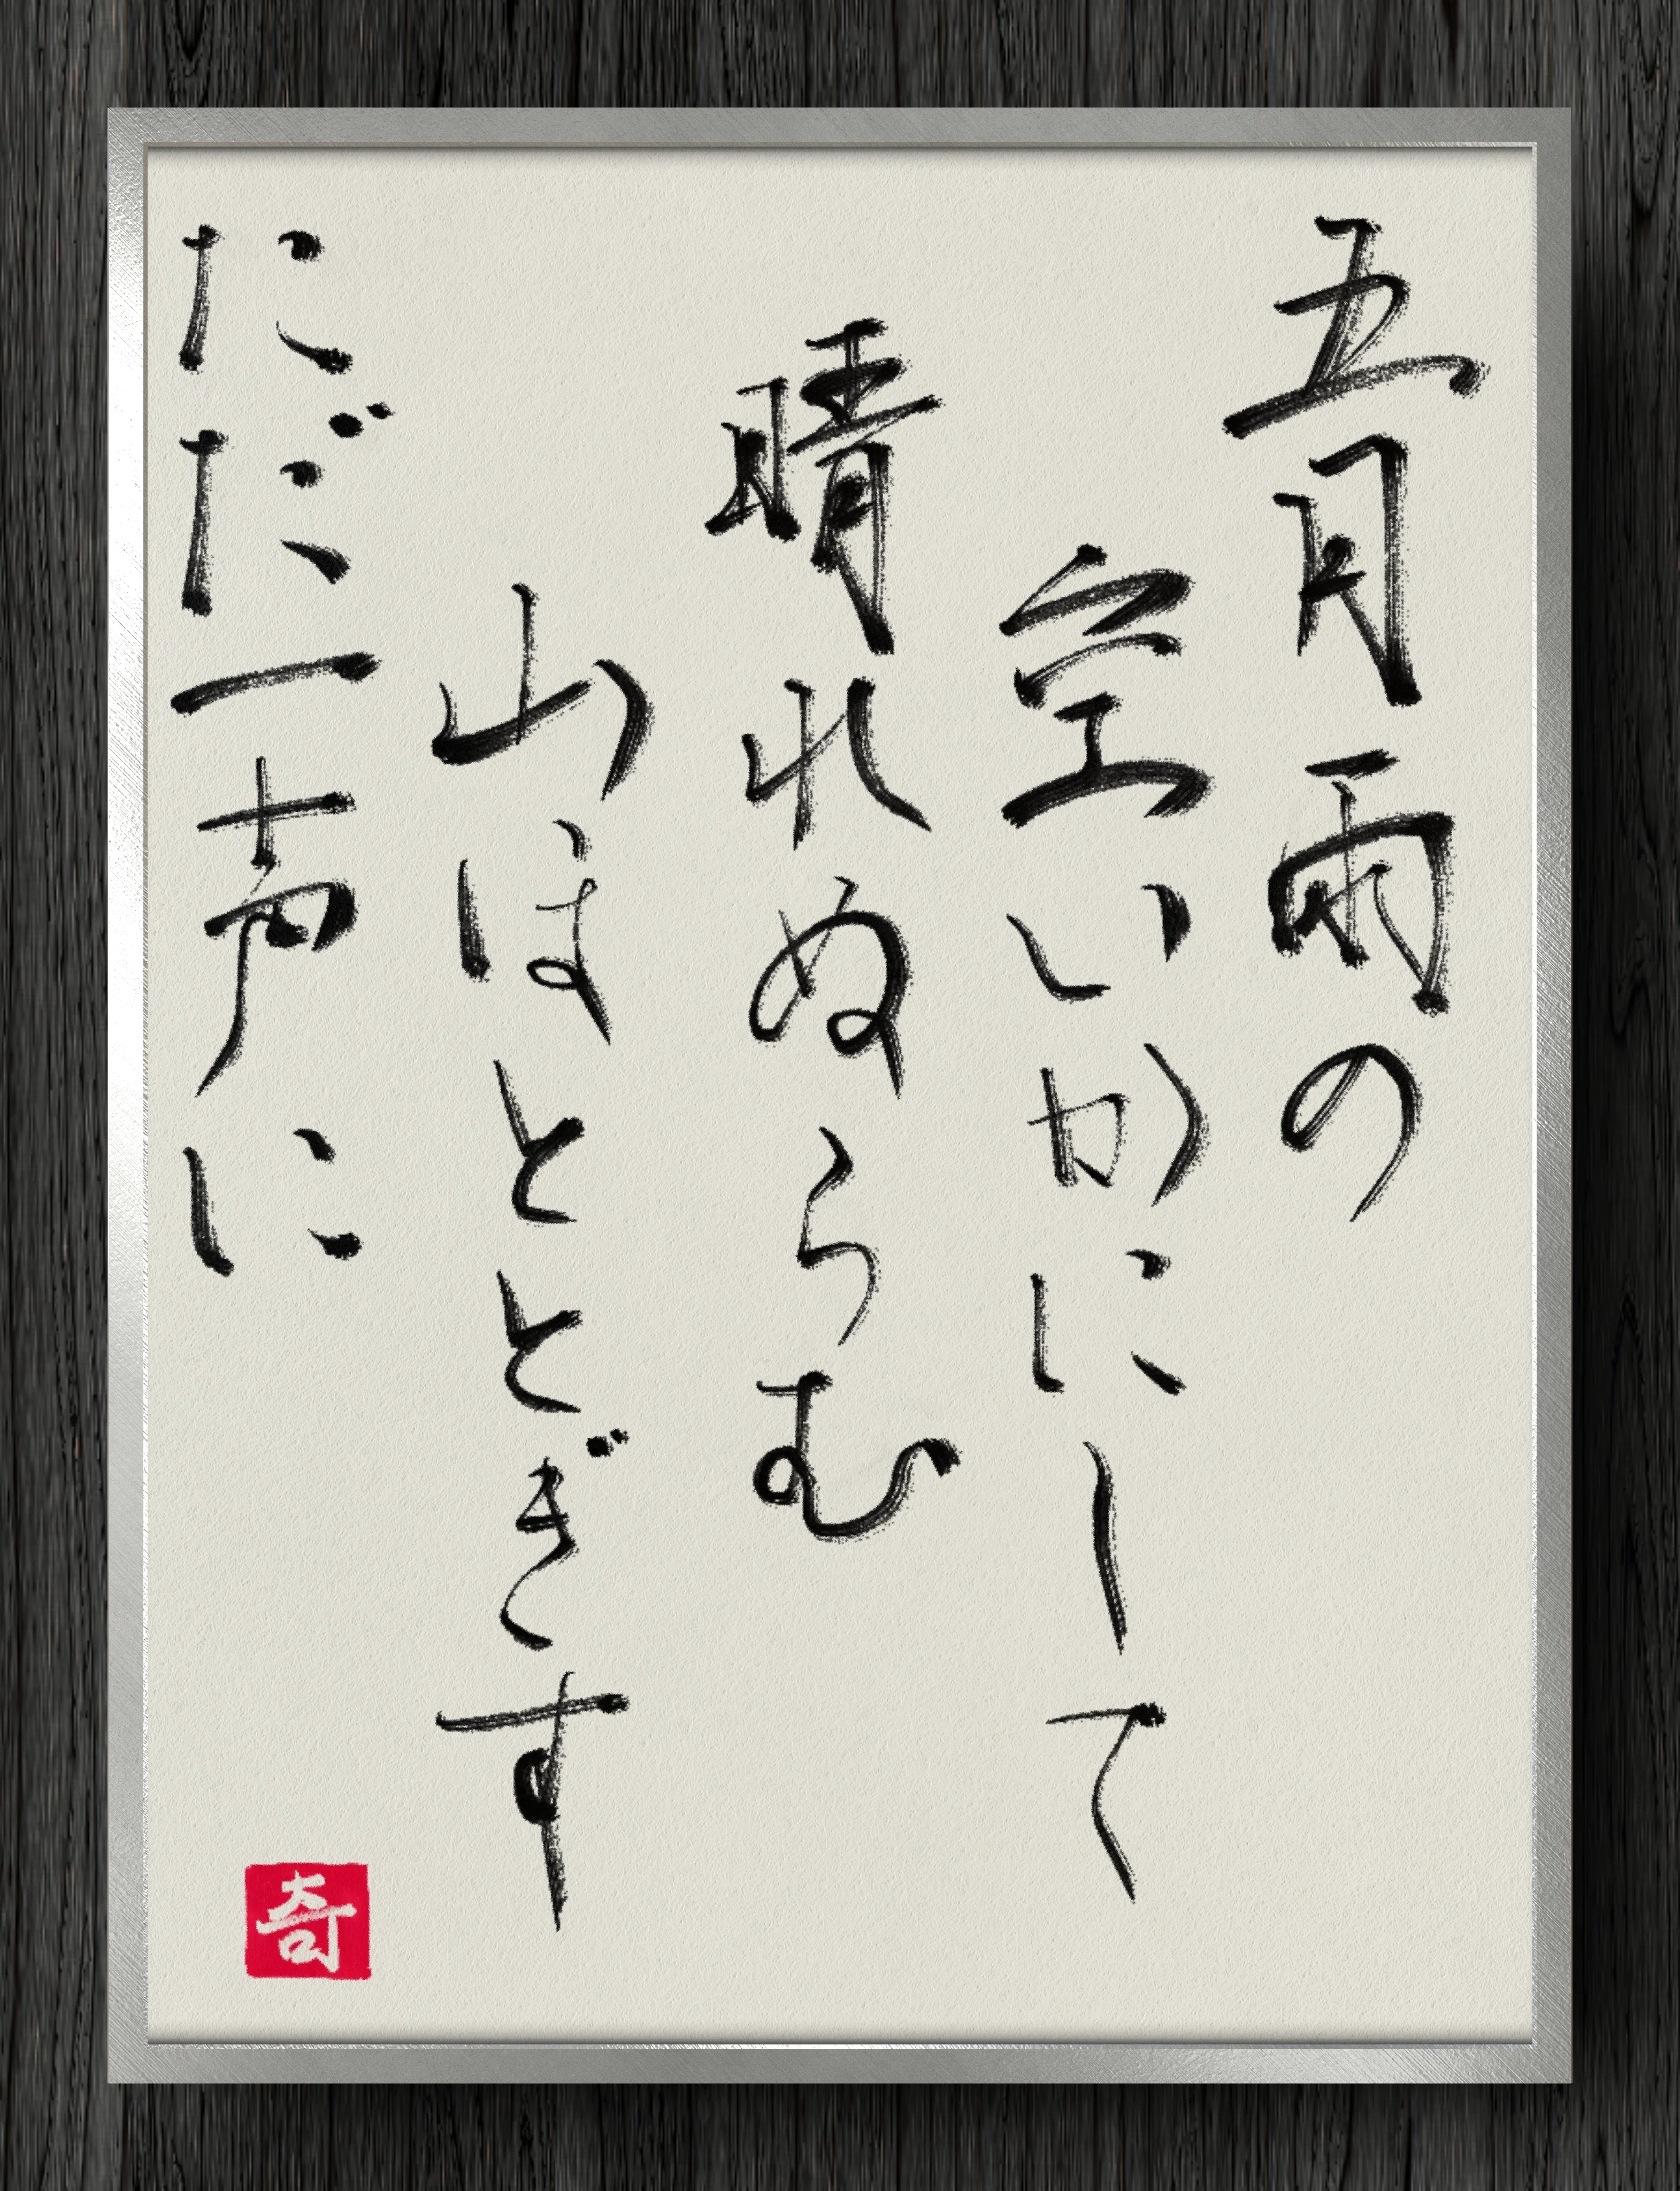 五月雨の
空いかにして
晴れぬらむ
山ほととぎす
ただ一声に
奇